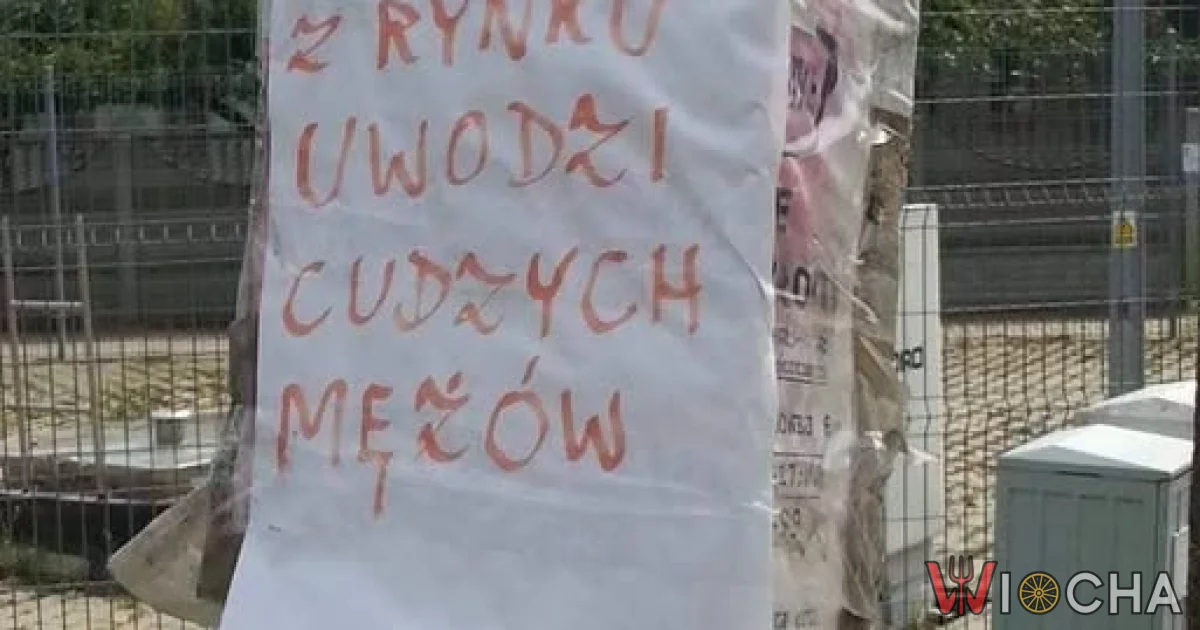 Z RYNKU
UWODZI
CUDZYCH
MĘŻÓW
WIOCHA